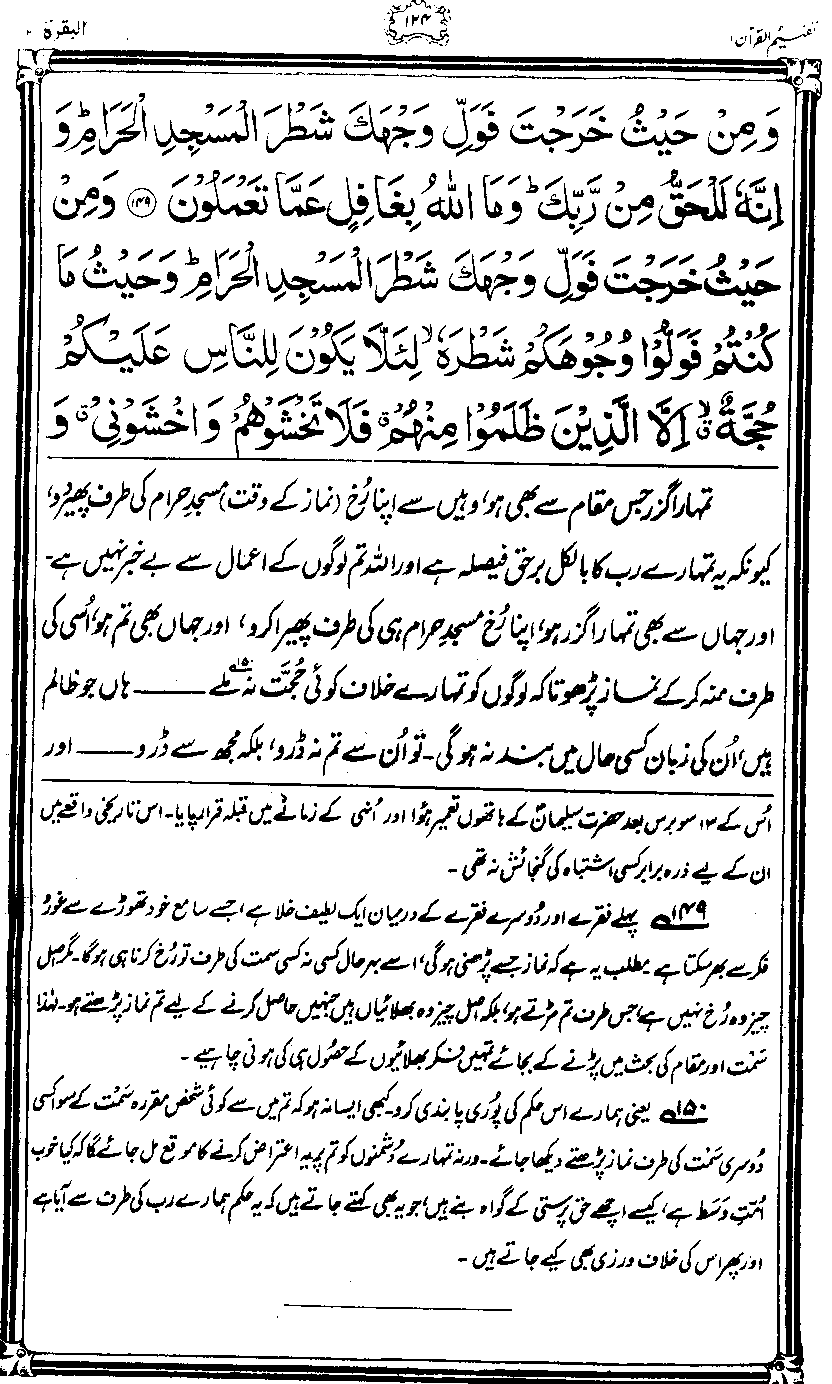 تفہیم القرآن ۱
۱۲۴
البقرۃ ۲
وَ مِنْ حَیْثُ خَرَجْتَ فَوَلِّ وَجْهَكَ شَطْرَ الْمَسْجِدِ الْحَرَامِ ؕ وَ
اِنَّهٗ لَلْحَقُّ مِنْ رَّبِّكَ ؕ وَمَا اللّٰهُ بِغَافِلٍ عَمَّا تَعْمَلُوْنَ ﴿۱۴۹﴾ وَمِنْ
حَیْثُ خَرَجْتَ فَوَلِّ وَجْهَكَ شَطْرَ الْمَسْجِدِ الْحَرَامِ ؕ وَحَیْثُ مَا
كُنْتُمْ فَوَلُّوْا وُجُوْهَكُمْ شَطْرَهٗ ۙ لِئَلَّا یَكُوْنَ لِلنَّاسِ عَلَیْكُمْ
حُجَّةٌ ۙۗ اِلَّا الَّذِیْنَ ظَلَمُوْا مِنْهُمْ ۗ فَلَا تَخْشَوْهُمْ وَاخْشَوْنِیْ ۗ وَ
تمہارا گزر جس مقام سے بھی ہو، وہیں سے اپنا رُخ (نماز کے وقت) مسجدِ حرام کی طرف پھیر دو،
کیونکہ یہ تمہارے رب کا بالکل برحق فیصلہ ہے اور اللہ تم لوگوں کے اعمال سے بے خبر نہیں ہے۔
اور جہاں سے بھی تمہارا گزر ہو، اپنا رُخ مسجدِ حرام ہی کی طرف پھیرا کرو، اور جہاں بھی تم ہو، اُسی کی
طرف منہ کر کے نماز پڑھو تاکہ لوگوں کو تمہارے خلاف کوئی حُجَّت نہ ملے۱۵۰ ــــــ ہاں جو ظالم
ہیں، اُن کی زبان کسی حال میں بند نہ ہو گی۔ تو اُن سے تم نہ ڈرو، بلکہ مجھ سے ڈرو ــــــ اور
اُس کے ۱۳ سو برس بعد حضرت سلیمانؑ کے ہاتھوں تعمیر ہُوا اور اُنہی کے زمانے میں قبلہ قرار پایا۔ اس تاریخی واقعے میں
ان کے لیے ذرہ برابر کسی اشتباہ کی گنجائش نہ تھی۔
۱۴۹ پہلے فقرے اور دُوسرے فقرے کے درمیان ایک لطیف خلا ہے، جسے سامع خود تھوڑے سے غور و
فکر سے بھر سکتا ہے۔ مطلب یہ ہے کہ نماز جسے پڑھنی ہو گی، اسے بہرحال کسی نہ کسی سمت کی طرف تو رُخ کرنا ہی ہو گا۔ مگر اصل
چیز وہ رُخ نہیں ہے جس طرف تم مڑتے ہو، بلکہ اصل چیز وہ بھلائیاں ہیں جنہیں حاصل کرنے کے لیے تم نماز پڑھتے ہو۔ لہٰذا
سَمْت اور مقام کی بحث میں پڑنے کے بجائے تمہیں فکر بھلائیوں کے حصُول ہی کی ہونی چاہیے۔
۱۵۰ یعنی ہمارے اس حکم کی پُوری پابندی کرو۔ کبھی ایسا نہ ہو کہ تم میں سے کوئی شخص مقررہ سَمْت کے سوا کسی
دُوسری سَمْت کی طرف نماز پڑھتے دیکھا جائے۔ ورنہ تمہارے دُشمنوں کو تم پر یہ اعتراض کرنے کا موقع مل جائے گا کہ کیا خوب
اُمّتِ وَسَط ہے، کیسے اچھے حق پرستی کے گواہ بنے ہیں، جو یہ بھی کہتے جاتے ہیں کہ یہ حکم ہمارے رب کی طرف سے آیا ہے
اور پھر اس کی خلاف ورزی بھی کیے جاتے ہیں۔